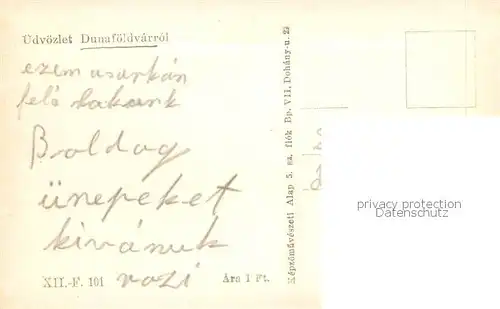 Üdvözlet Dunaföldvárról
ezem usarkán
felő lakunk
Boldog
ünepeket
kivánuk
rozi
XII.-F. 101
Ára 1 Ft.
Képzőművészeti Alap 5. sz. fiók Bp. VII. Dohány-u. 22
privacy protection
Datenschutz